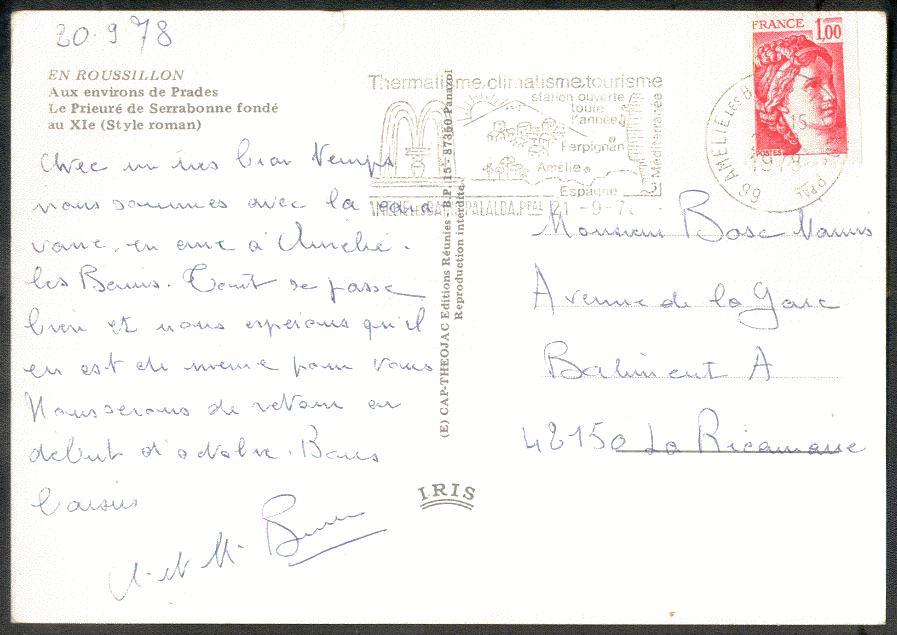 20.9 78
EN ROUSSILLON
Aux environs de Prades
Le Prieuré de Serrabonne fondé
au XIe (Style roman)
Avec un très beau Temps
nous sommes avec la cara
vane en cure à Amélie.
les Bains. Tout se passe
bien et nous espérons qu'il
en est de même pour Vous
Nous serons de retour au
début d'octobre. Bons
baisers
(E) CAP-THEOJAC Editions Réunies - B.P. 15 - 87350 Panazol
Reproduction interdite.
IRIS
Thermalisme, climatisme, tourisme
station ouverte
toute
l'année
Perpignan
Amélie
Espagne
Méditerranée
AMELIE LES BAINS PALALDA. PPAL 21 -9-7
FRANCE 1,00
POSTES
66 AMELIE LES B
15
1978
PPAL
Monsieur Bosc
Avenue de la Gare
Batiment A
42150 La Ricamarie